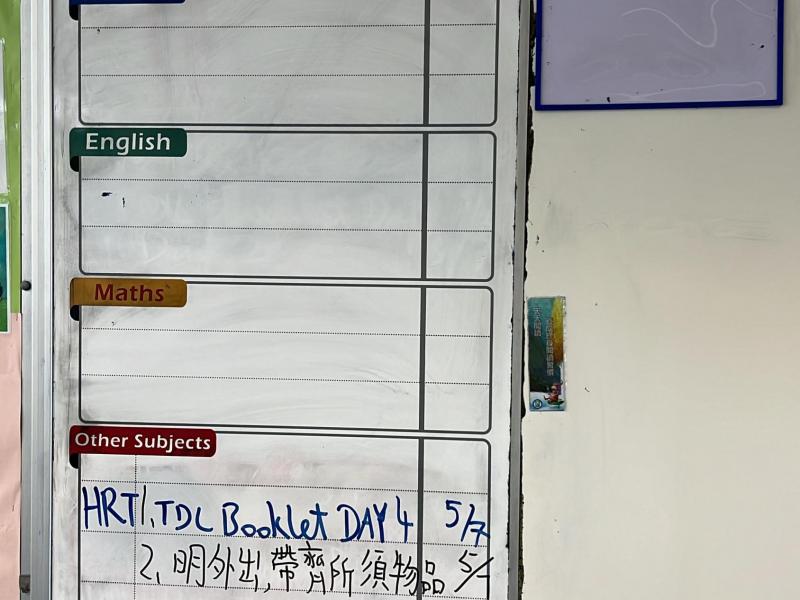 English
Maths
Other Subjects
HRT 1. TDL Booklet DAY 4 5/7
2、明外出,帶齊所須物品 5/7